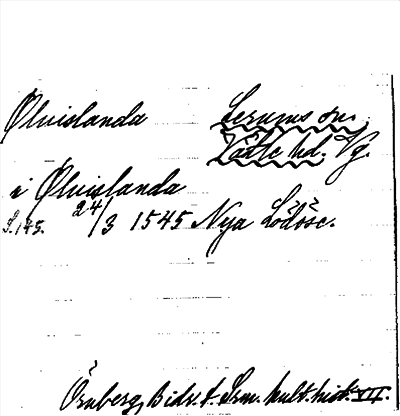 Ølvislanda Lerums sn.
Vättle hd. Vg.
i Ølvislanda
S. 145. 24/3 1545 Nya Lödöse.
Örnberg, Bidr. t. Svm. kult. hist. VII.